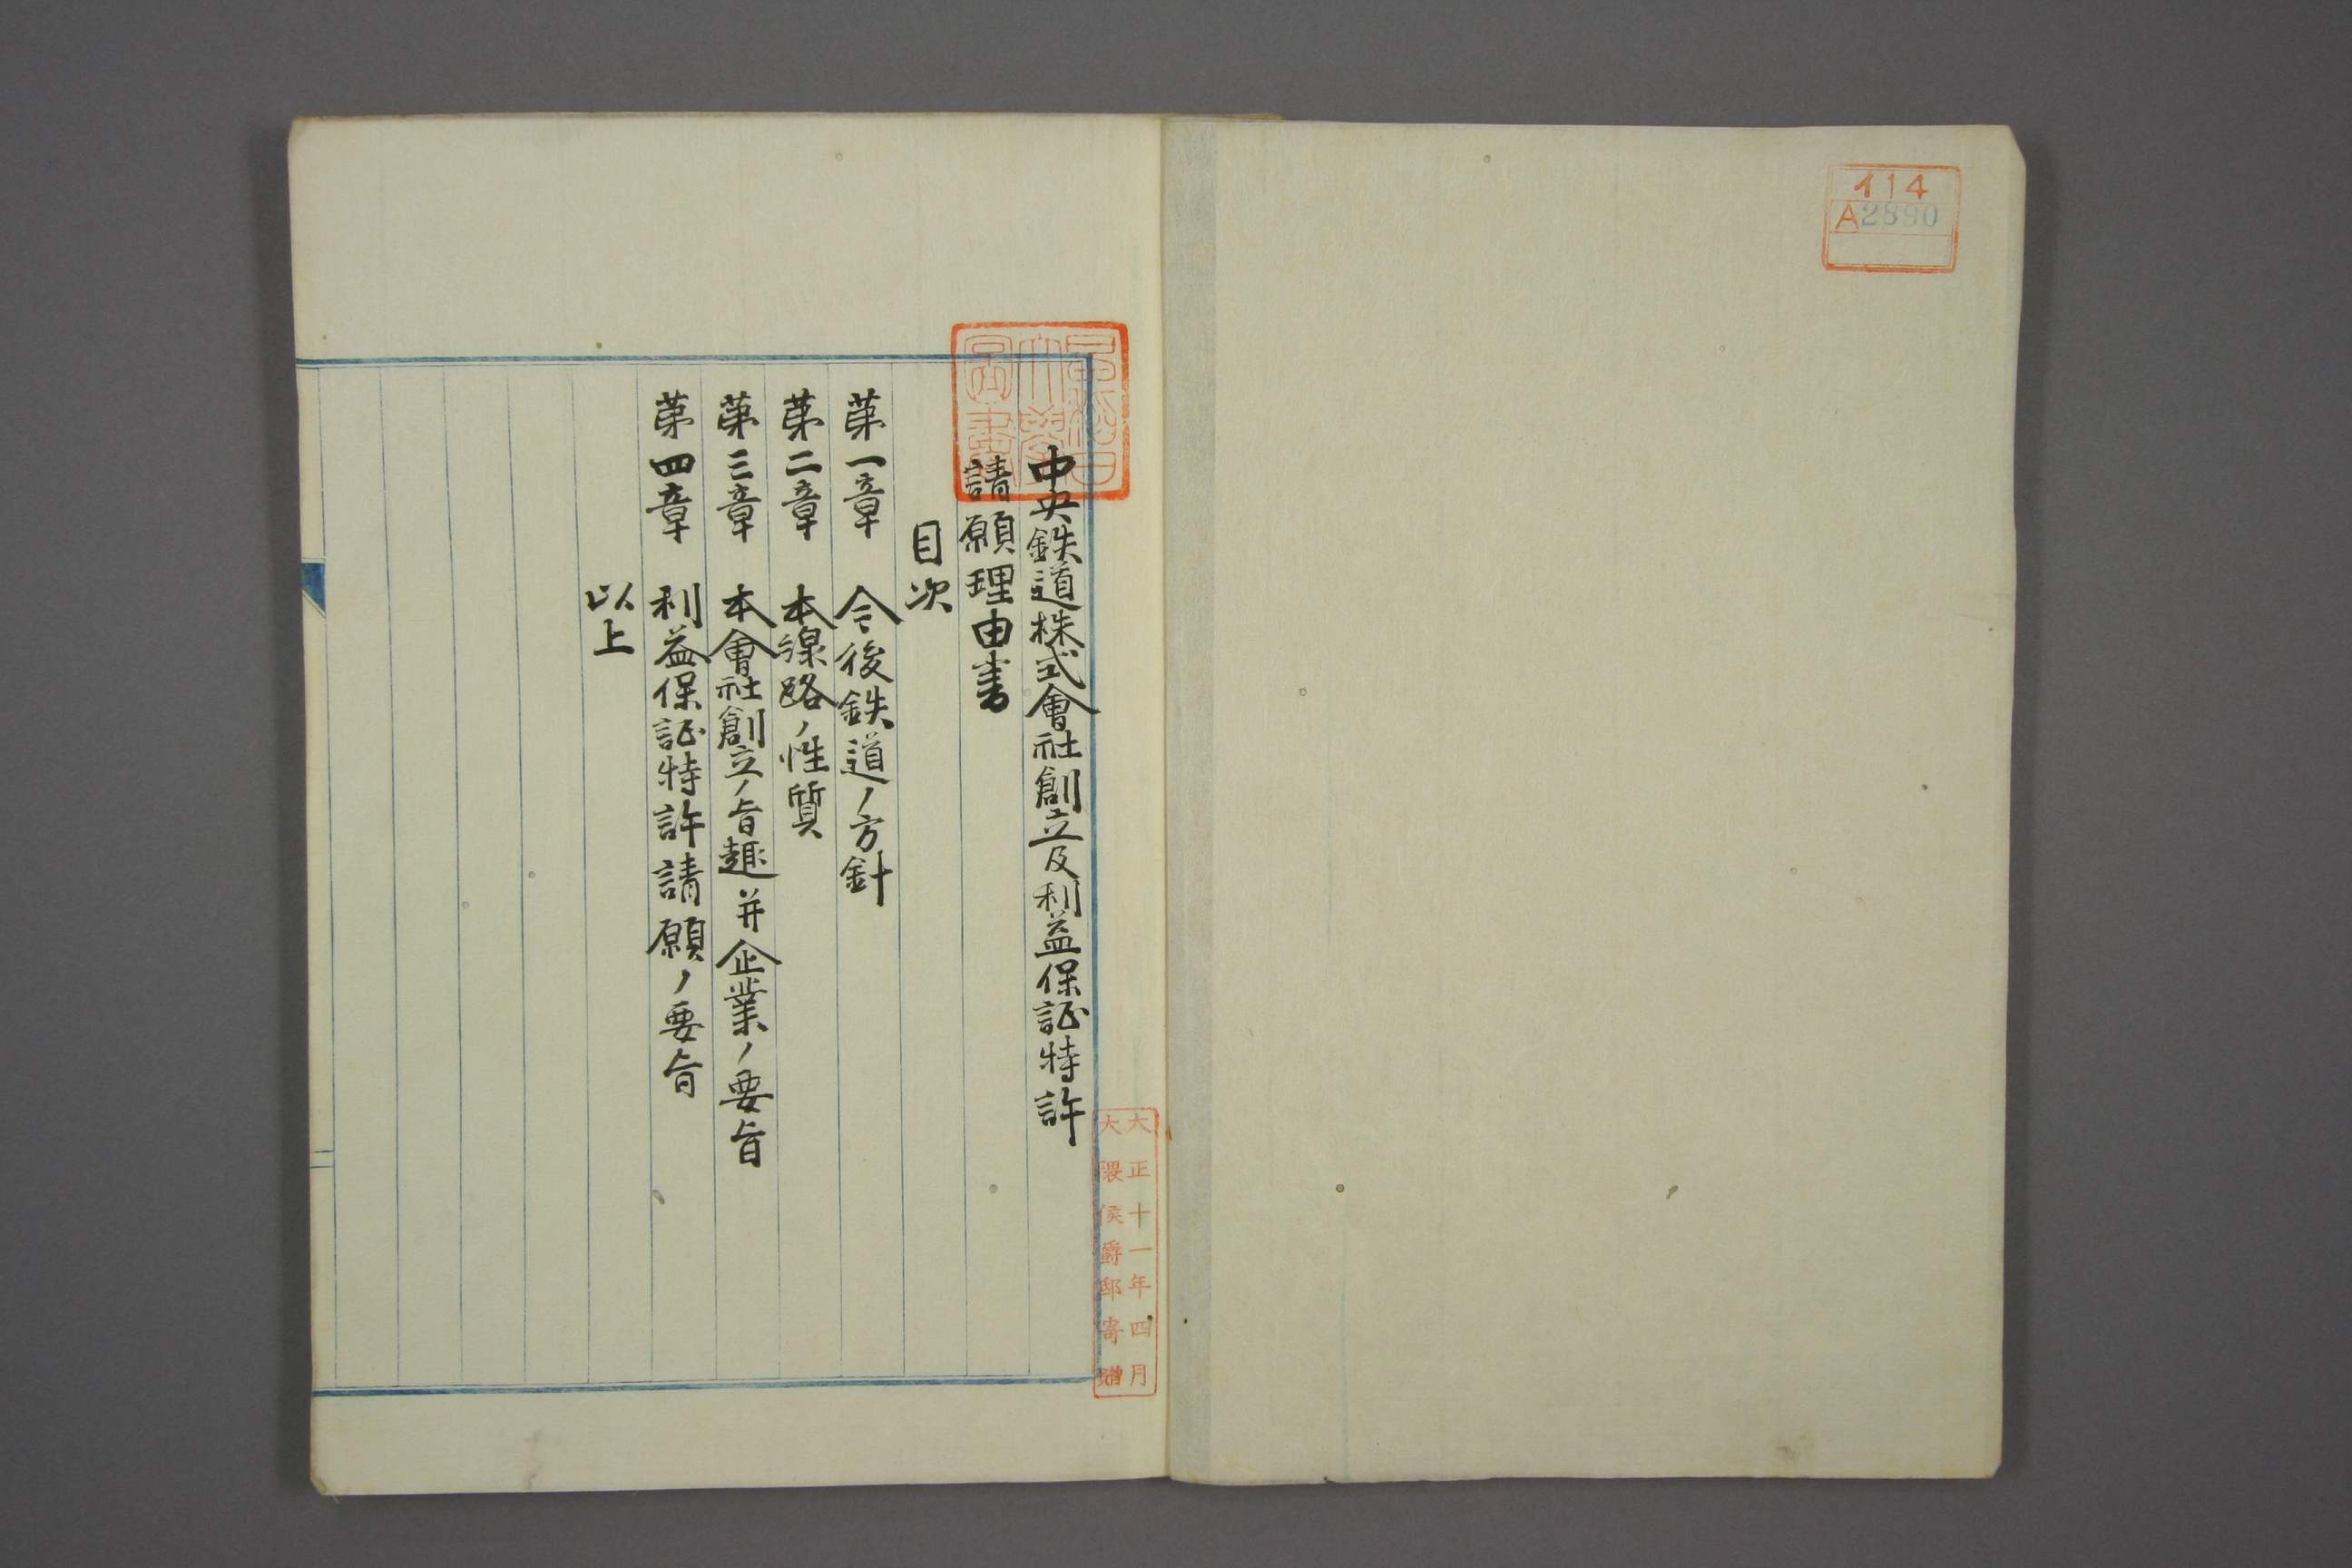 イ14
A2890
中央鉄道株式會社創立及利益保証特許
請願理由書
目次
第一章 今後鉄道ノ方針
第二章 本線路ノ性質
第三章 本會社創立ノ旨趣并企業ノ要旨
第四章 利益保証特許請願ノ要旨
以上
早稲田
大学
図書
大正十一年四月
大隈侯爵邸寄贈